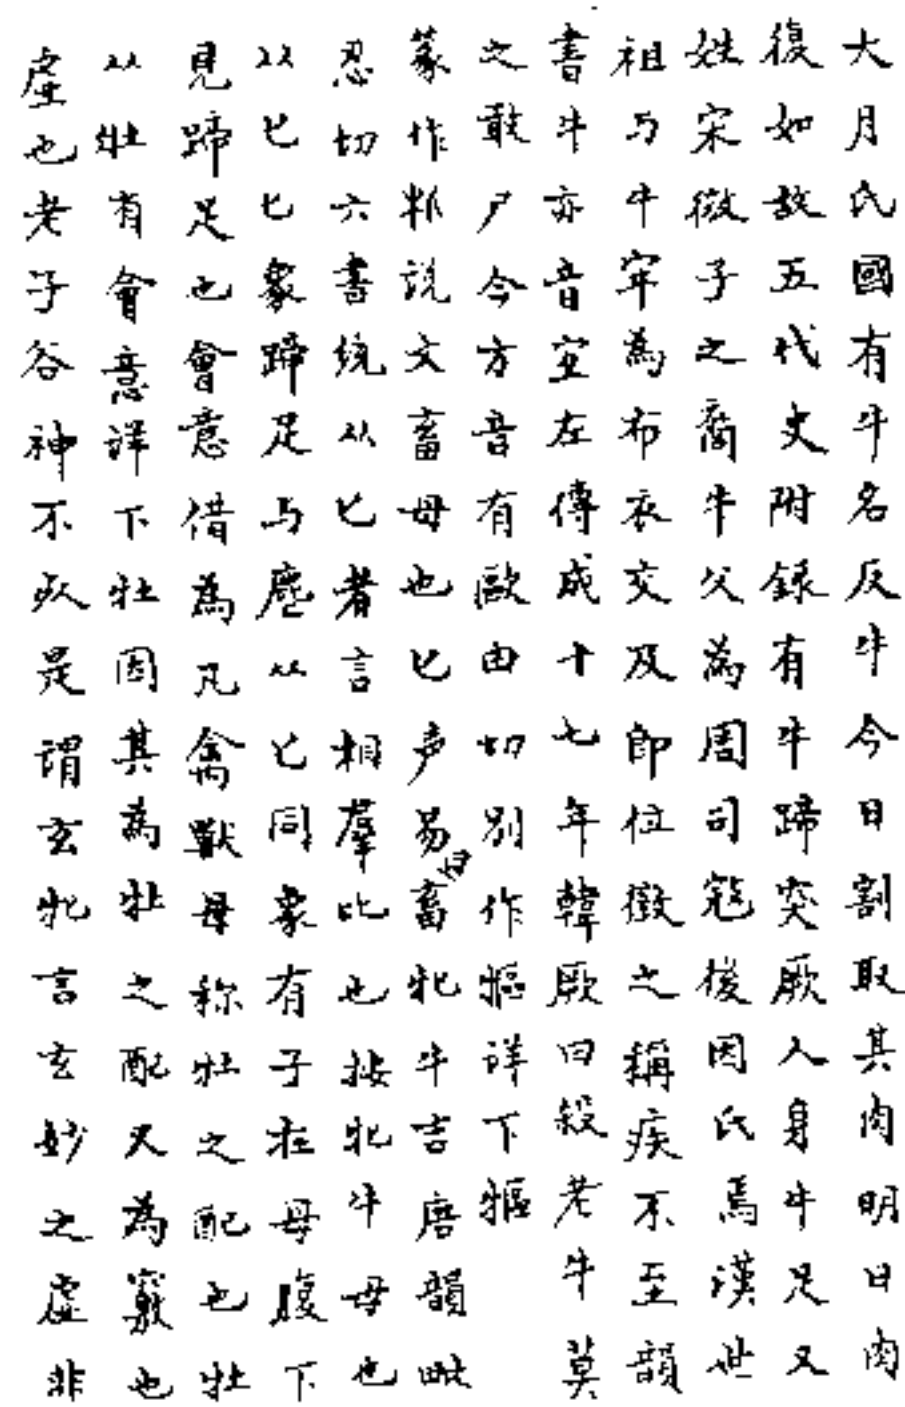 大月氏國有牛名反牛今日割取其肉明日肉
復如故五代史附録有牛蹄突厥人身牛足又
姓宋微子之裔牛父為周司寇後因氏焉漢世
祖与牛牢為布衣交及即位徴之稱疾不至韻
書牛亦音宜左傳成十七年韓厥曰殺老牛莫
之敢尸今方音有歐由切別作㹨詳下㹨
篆作牝説文畜母也匕声易曰畜牝牛吉唐韻毗
忍切六書統从匕者言相羣比也按牝牛母也
从匕匕象蹄足与麀从匕同象有子在母腹下
見蹄足也會意借為凡禽獸母称牡之配也牡
从牡有會意詳下牡因其為牡之配又為竅也
虗也老子谷神不死是謂玄牝言玄妙之虚非